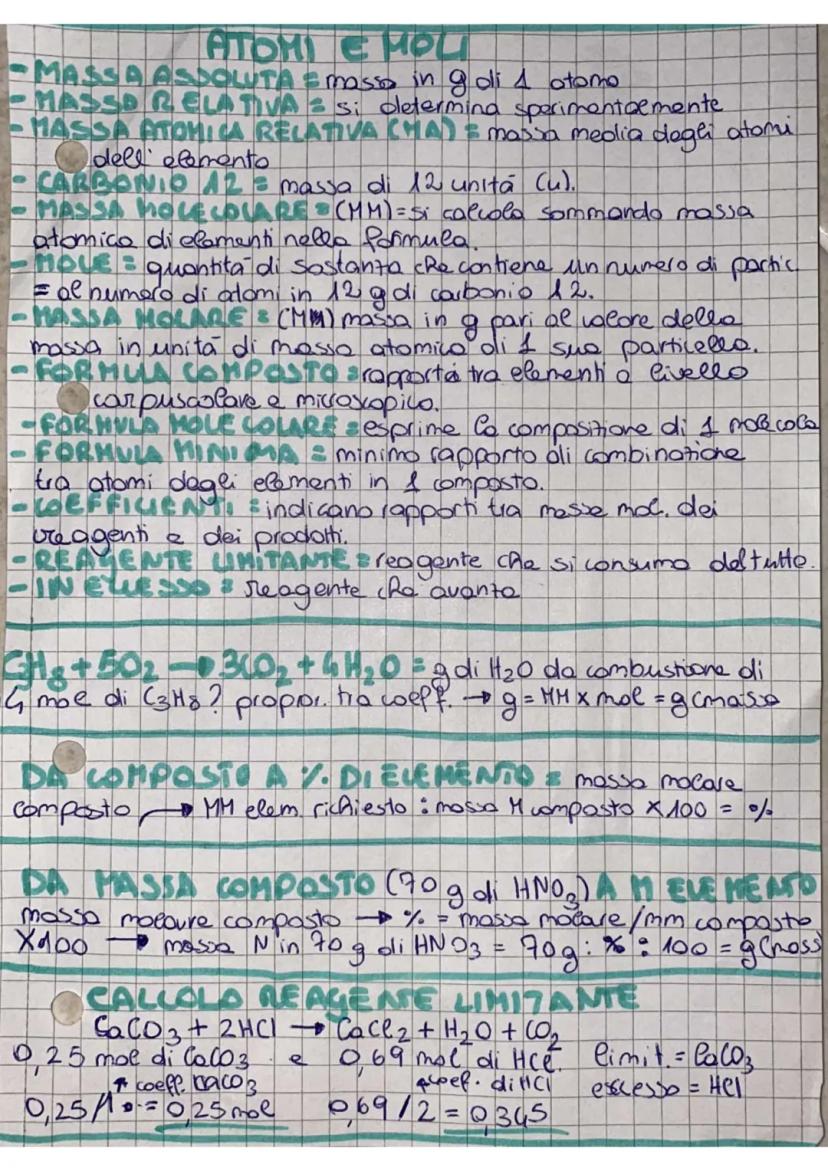 ATOMI E MOLI
- MASSA ASSOLUTA = massa in g di 1 atomo
- MASSA RELATIVA = si determina sperimentaemente
- MASSA ATOMICA RELATIVA (MA) = massa media dagli atomi
dell' elemento
- CARBONIO 12 = massa di 12 unità (u).
- MASSA MOLECOLARE = (MM) = si calcola sommando massa
atomica di elementi nella formula.
- MOLE = quantità di sostanza che contiene un numero di partic.
= al numero di atomi in 12 g di carbonio 12.
- MASSA MOLARE = (MM) massa in g pari al valore della
massa in unità di massa atomica di 1 sua particella.
- FORMULA COMPOSTO = rapporto tra elementi a livello
corpuscolare e microscopico.
- FORMULA MOLECOLARE = esprime la composizione di 1 molecola
- FORMULA MINIMA = minimo rapporto di combinazione
tra atomi degli elementi in 1 composto.
- COEFFICIENTI = indicano rapporti tra masse mol. dei
reagenti e dei prodotti.
- REAGENTE LIMITANTE = reagente che si consuma del tutto.
- IN ECCESSO = reagente che avanza
C3H8 + 5O2 → 3CO2 + 4H2O = g di H2O da combustione di
4 mol di C3H8? propor. tra coeff. → g = MM x mol = g (massa
DA COMPOSTO A % DI ELEMENTO = massa molare
composto → MM elem. richiesto : massa M composto X 100 = %
DA MASSA COMPOSTO (70 g di HNO3) A M ELEMENTO
massa molare composto → % = massa molare / mm composto
X100 → massa N in 70 g di HNO3 = 70g : % : 100 = g (mass
CALCOLO REAGENTE LIMITANTE
CaCO3 + 2HCl → CaCl2 + H2O + CO2
0,25 mol di CaCO3 e 0,69 mol di HCl. limit. = CaCO3
↑ coeff. CaCO3 ↑ coef. di HCl eccesso = HCl
0,25/1 = 0,25 mol 0,69/2 = 0,345